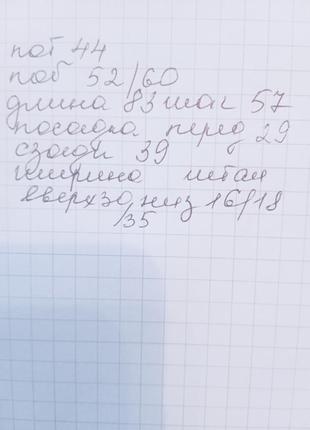 пот 44
поб 52/60
длина 83 шаг 57
посадка перед 29
сзади 39
ширина штан
вверх 30 низ 16/18
/35